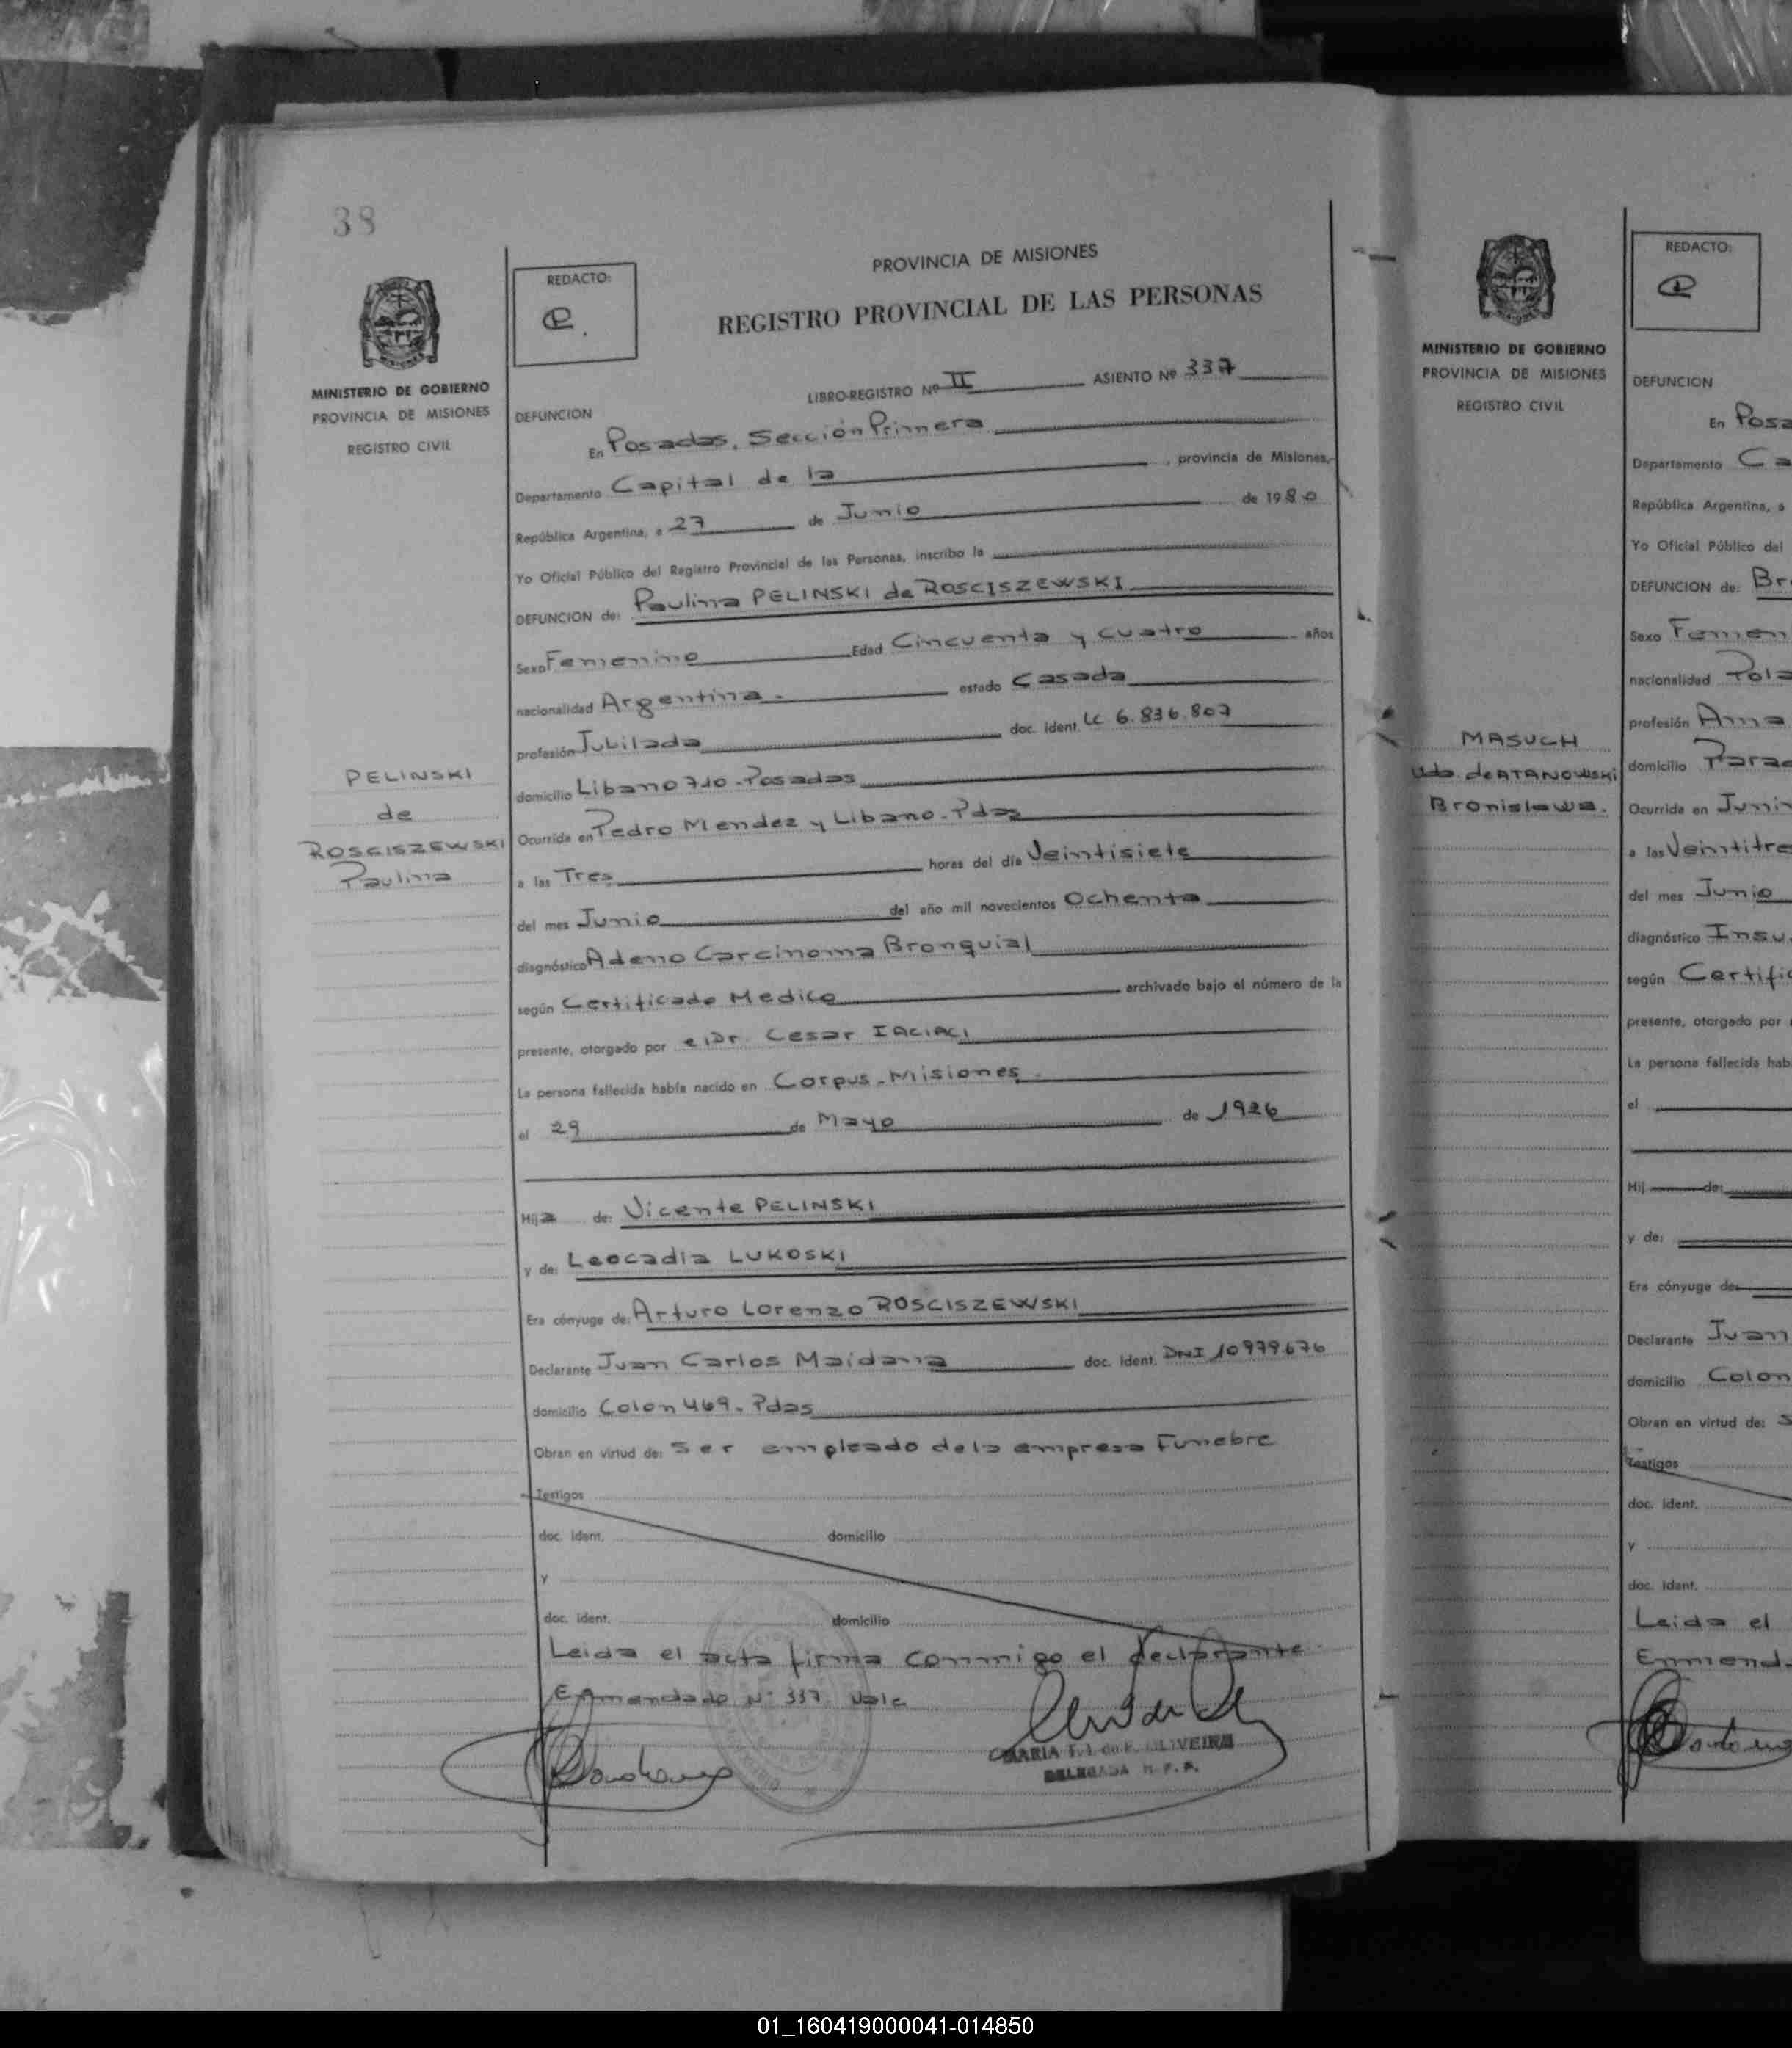 38
MINISTERIO DE GOBIERNO
PROVINCIA DE MISIONES
REGISTRO CIVIL
PELINSKI
de
ROSCISZEWSKI
Paulina
REDACTO:
PROVINCIA DE MISIONES
REGISTRO PROVINCIAL DE LAS PERSONAS
LIBRO-REGISTRO Nº II ASIENTO Nº 337
DEFUNCION
En Posadas, Sección Primera
Departamento Capital de la, provincia de Misiones,
República Argentina, a 27 de Junio de 1980
Yo Oficial Público del Registro Provincial de las Personas, inscribo la
DEFUNCION de: Paulina PELINSKI de ROSCISZEWSKI
Sexo Femenino Edad Cincuenta y cuatro años
nacionalidad Argentina.- estado Casada
profesión Jubilada doc. ident. LC 6.836.807
domicilio Libano 710-Posadas
Ocurrida en Pedro Mendez y Libano-Pdas
a las Tres horas del día Veintisiete
del mes Junio del año mil novecientos Ochenta
diagnóstico Adeno Carcinoma Bronquial
según Certificado Medico archivado bajo el número de la
presente, otorgado por el Dr. Cesar IACIACI
La persona fallecida había nacido en Corpus-Misiones
el 29 de Mayo de 1926
Hija de: Vicente PELINSKI
y de: Leocadia LUKOSKI
Era cónyuge de: Arturo Lorenzo ROSCISZEWSKI
Declarante Juan Carlos Maidana doc. ident. DNI 10979676
domicilio Colon 469-Pdas
Obran en virtud de: Ser empleado de la empresa Funebre
Testigos
doc. ident. domicilio
y
doc. ident. domicilio
Leida el acta firma conmigo el declarante.
Enmendado Nº 337. Vale
MARIA T. I. de F. OLIVEIRA
DELEGADA R. P. P.
MINISTERIO DE GOBIERNO
PROVINCIA DE MISIONES
REGISTRO CIVIL
MASUCH
Vda. de ATANOWSKI
Bronislawa.
REDACTO:
DEFUNCION
En Posa
Departamento Ca
República Argentina, a
Yo Oficial Público del
DEFUNCION de: Br
Sexo Femen
nacionalidad Pola
profesión Ama
domicilio Para
Ocurrida en Juni
a las Veintitre
del mes Junio
diagnóstico Insu
según Certific
presente, otorgado por
La persona fallecida hab
el
Hij de:
y de:
Era cónyuge de:
Declarante Juan
domicilio Colon
Obran en virtud de: S
Testigos
doc. ident.
y
doc. ident.
Leida el
Enmend
01_160419000041-014850